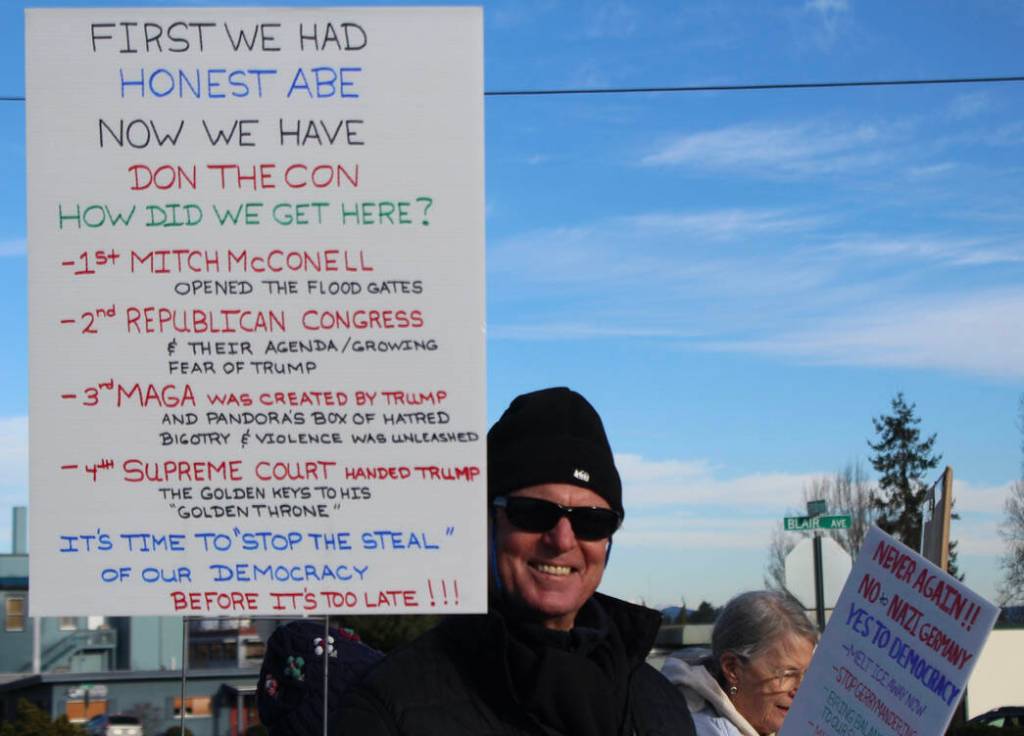 FIRST WE HAD
HONEST ABE
NOW WE HAVE
DON THE CON
HOW DID WE GET HERE?
-1st MITCH McCONELL
OPENED THE FLOOD GATES
-2nd REPUBLICAN CONGRESS
& THEIR AGENDA/GROWING
FEAR OF TRUMP
-3rd MAGA WAS CREATED BY TRUMP
AND PANDORA'S BOX OF HATRED
BIGOTRY & VIOLENCE WAS UNLEASHED
-4th SUPREME COURT HANDED TRUMP
THE GOLDEN KEYS TO HIS
"GOLDEN THRONE"
IT'S TIME TO "STOP THE STEAL"
OF OUR DEMOCRACY
BEFORE IT'S TOO LATE !!!
BLAIR AVE
NEVER AGAIN!!
NO to NAZI GERMANY
YES TO DEMOCRACY
-MELT ICE AWAY NOW
-STOP GERRYMANDERING